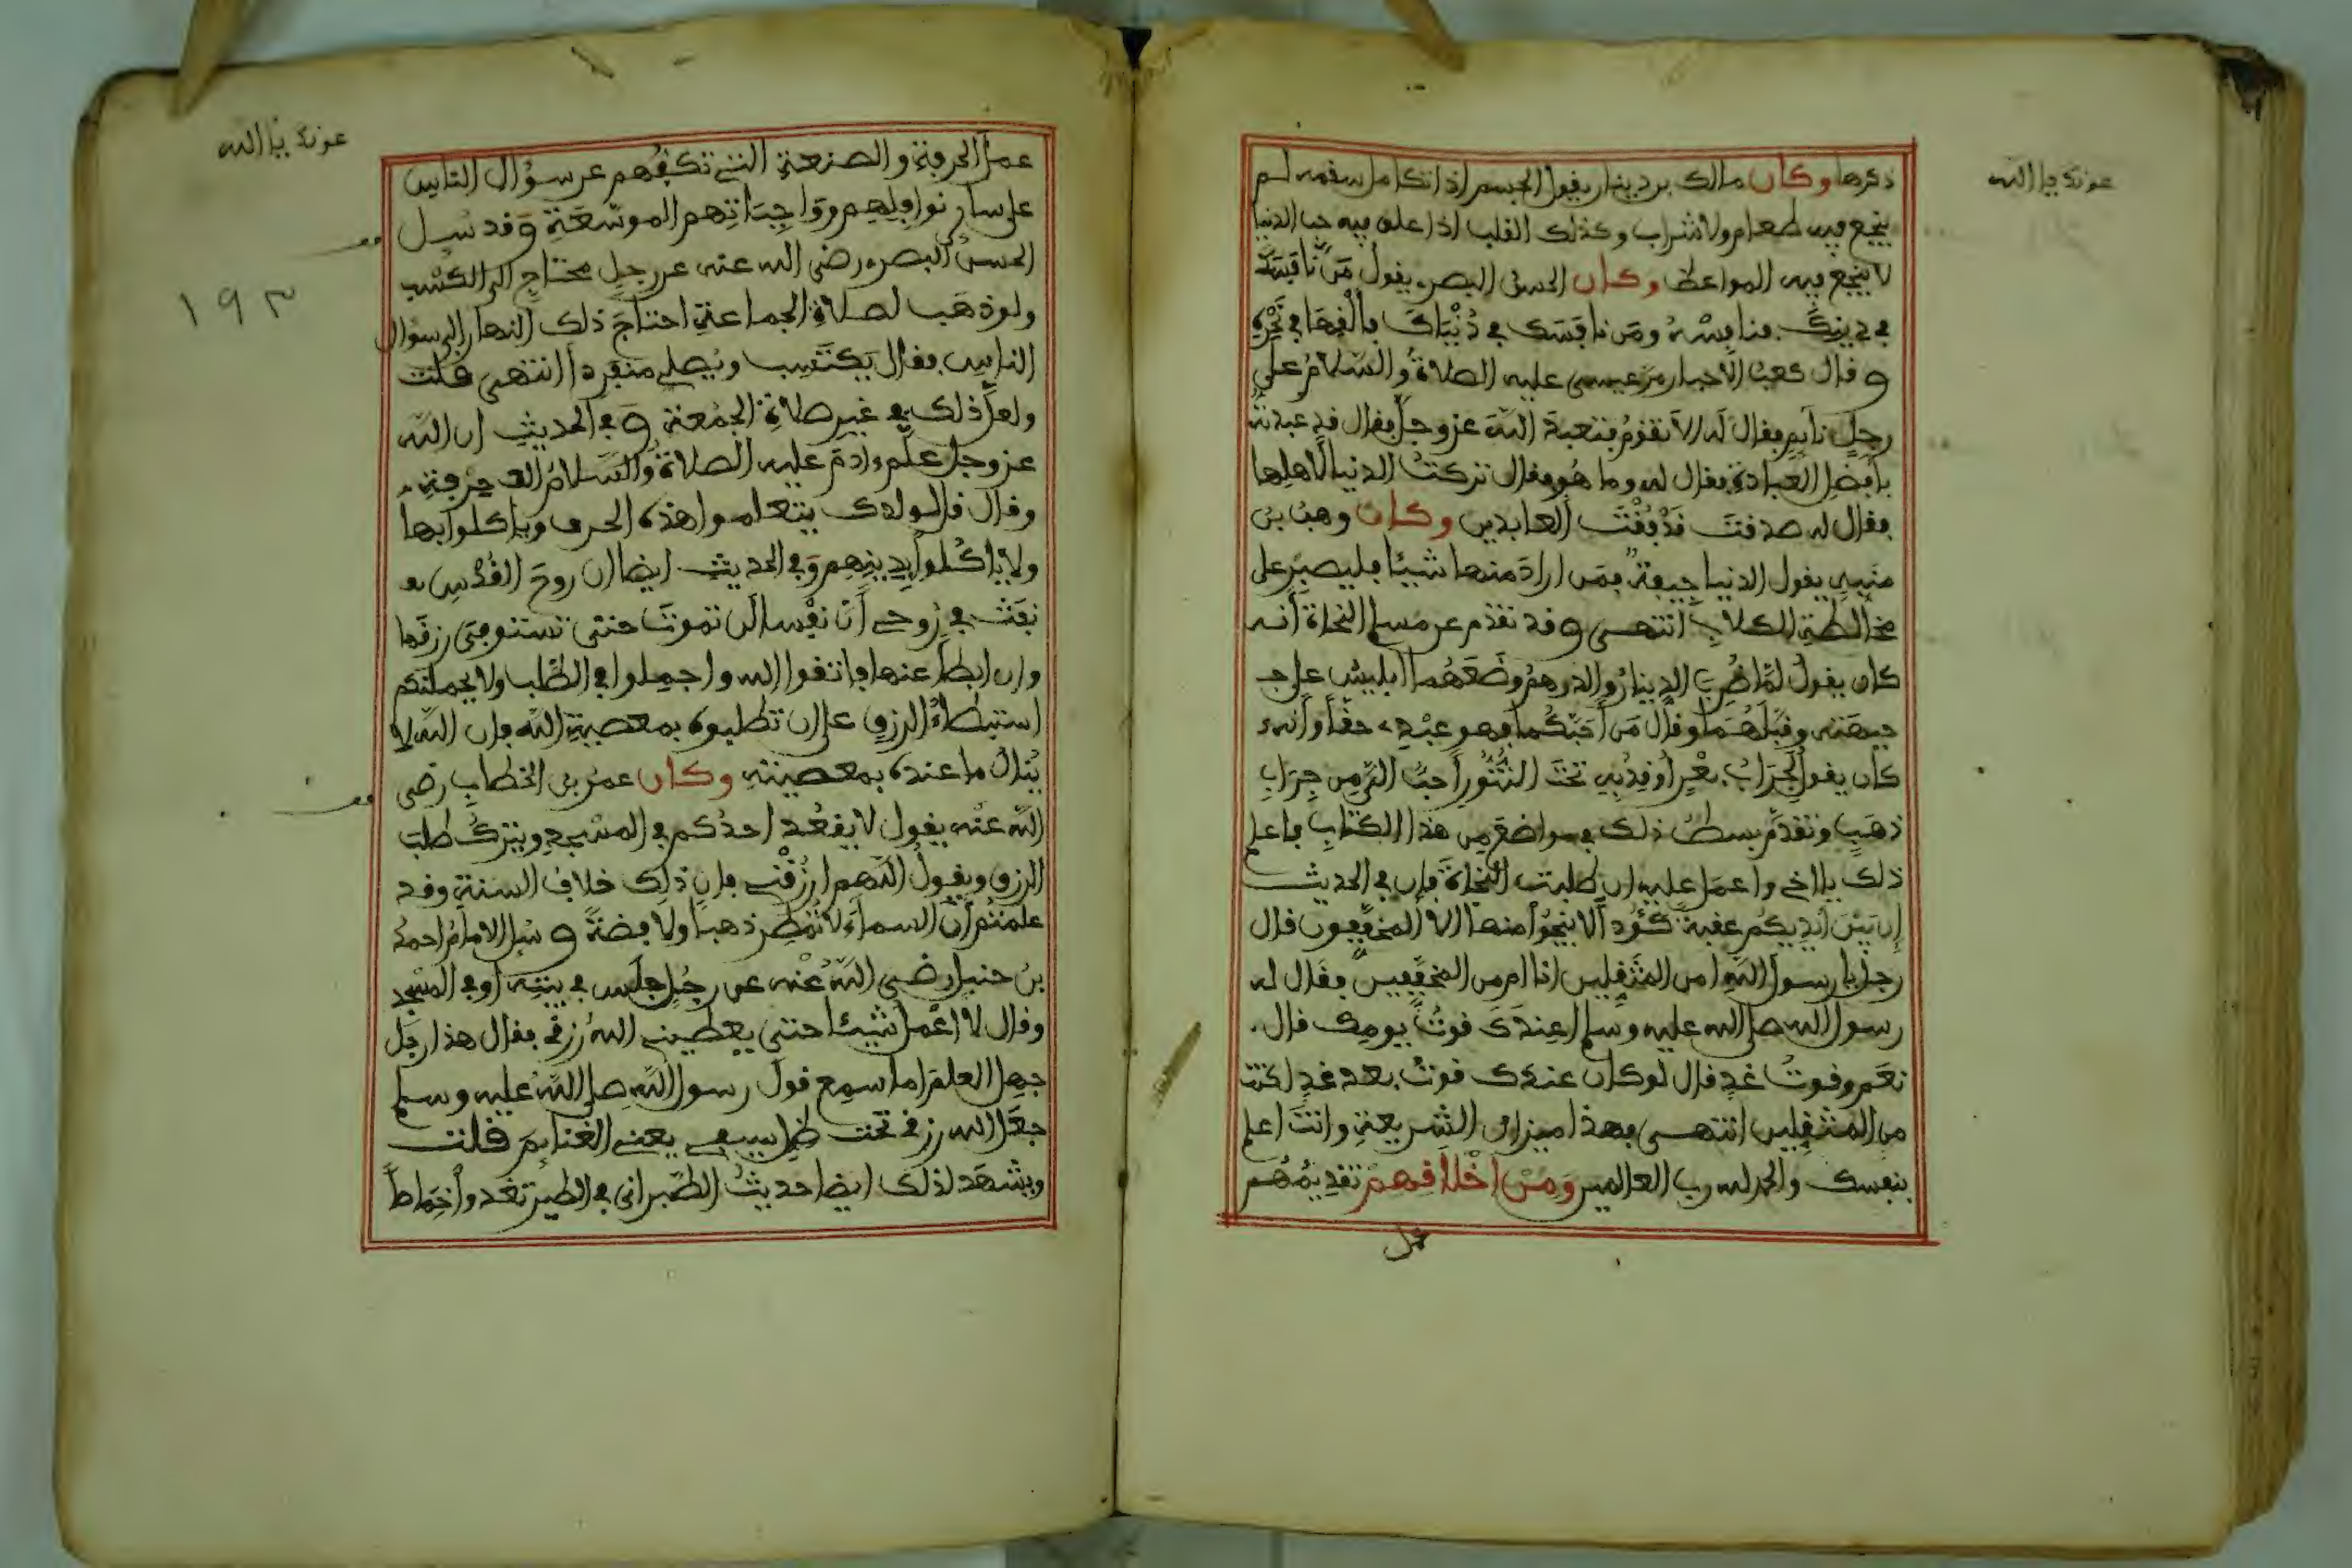 عونك يا الله
ذكرها وكان مالك بن دينار يقول الجسم إذا تكامل سقمه لم
ينجع فيه طعام ولا شراب وكذلك القلب إذا علق فيه حب الدنيا
لا ينجع فيه المواعظ وكان الحسن البصري يقول مَن نافسَكَ
في دينِكَ فنافِسْهُ ومَن نافسَك في دُنْيَاكَ فألْقِهَا في نَحْرِهِ
وقال كعبُ الأحبار مرّ عيسى عليه الصلاةُ والسّلامُ على
رجلٍ نايمٍ فقال له ألا تقومُ فتعبدَ اللهَ عز وجلّ فقال قد عبدتُه
بأفضل العبادة فقال له وما هُو فقال تركتُ الدنيا لأهلها
فقال له صدقتَ فَدْ فُقْتَ العابدين وكان وهبُ بن
منَبهٍ يقول الدنيا جِيفةٌ فمَن ارادَ منها شيئا فليصبِر على
مخالطةِ الكلابِ انتهى وقد تقدّم عن مسلم النحاة أنه
كان يقولُ لمّا ضُرِبَ الدينارُ والدرهمُ وضَعَهُما ابليسُ على جـ
جبهَته وقبّلَهُمَا وقال مَن أحَبّكُما فهو عبْدِي حقًّا وأنه
كان يقول لَجِرَابُ بعْرٍ أُوقِدُ بِهِ تحْتَ التَّنُّورِ أحبُّ اليّ مِن جِرَابِ
ذهَبٍ وتقدّم بسطُ ذلك في مواضعَ مِن هذا الكتابِ فاعلم
ذلك يا اخي واعمَل عليه ان طلبت النجاةَ فإن في الحديث
إن بَيْنَ أيْدِيكُم عقبةً كَؤُدًا لا ينجُوا منها إلا المخفّفِون فقال
رجل يا رسولَ اللهِ أمن المثْقِلين انا ام من المخفّفِين فقَال له
رسول الله صلى الله عليه وسلم أعِندَكَ قوتُ يومِك قال
نعَم وقوتُ غدٍ قال لو كان عندك قوتُ بعد غدٍ لكنت
من المثقِلين انتهى فهذا ميزان الشريعةِ وانتَ اعلم
بنفسك والحمد لله رب العالمين وَمِنْ أخْلَاقِهمْ تقديمُهُم
عمل
عونك يا الله
١٩٣
عملَ الحرفةِ والصنعةِ التي تكفُهم عن سؤال الناس
على ساير نوافِلِهِم ووَاجِبَاتِهم الموسّعَةِ وقد سُئِل
الحسنُ البصري رضي الله عنه عن رجلٍ محتاجٍ الى الكسْبِ
ولو ذهَب لصلاةِ الجماعةِ احتاجَ ذلك النهار الى سؤال
الناسِ فقال يكتَسِب ويُصلي منفردا انتهى قلت
ولعلّ ذلك في غير صلاةِ الجمُعة وَفي الحديثِ ان الله
عز وجل علّم ءادمَ عليه الصلاةُ والسلامُ الف حِرْفةٍ
وقال قل لولدك يتعلموا هذه الحرف ويأكلوا بها
ولا يأكُلوا بِدِينِهِم وَفي الحديث ايضا ان روحَ القُدُسِ
نفَثَ في رُوعي أنّ نفْسا لن تموتَ حتى تستوفي رزقَها
وإن ابطأ عنها فاتقوا الله واجمِلوا في الطّلب ولا يحملنّكم
استبطاءُ الرزقِ على ان تطلبوه بمعصيةِ اللهِ فإن اللهَ لا
يُنال ما عنده بمعصيته وكان عمرُ بن الخطابِ رضي
اللهُ عنْه يقول لا يقعُد احدُكم في المسْجِدِ ويترُكُ طلب
الرزق ويقولُ اللهم ارزُقْني فإن ذلِك خلافُ السنةِ وقد
علمتُم أنّ السماءَ لا تُمطِر ذهبا ولا فضةً وسُئل الامامُ احمدُ
بنُ حنبل رضي اللهُ عنْه عن رجُلٍ جلَس في بيْتِه أو في المسْجِد
وقال لا اعْمل شيئا حتى يعطيني اللهُ رزقي فقال هذا رجل
جهِل العلمَ اما سمِع قول رسول اللهِ صلى اللهُ عليه وسلم
جعَل الله رزقي تحْت ظِلّ سيفي يعني الغنايِمَ قلت
ويشهَد لذلك ايضا حديثُ الطّبراني في الطيرِ تغْدوا خِمَاصاً